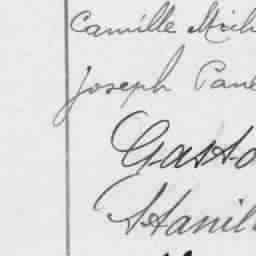 Camille Mich
Joseph Pane
Gasto
Stanil